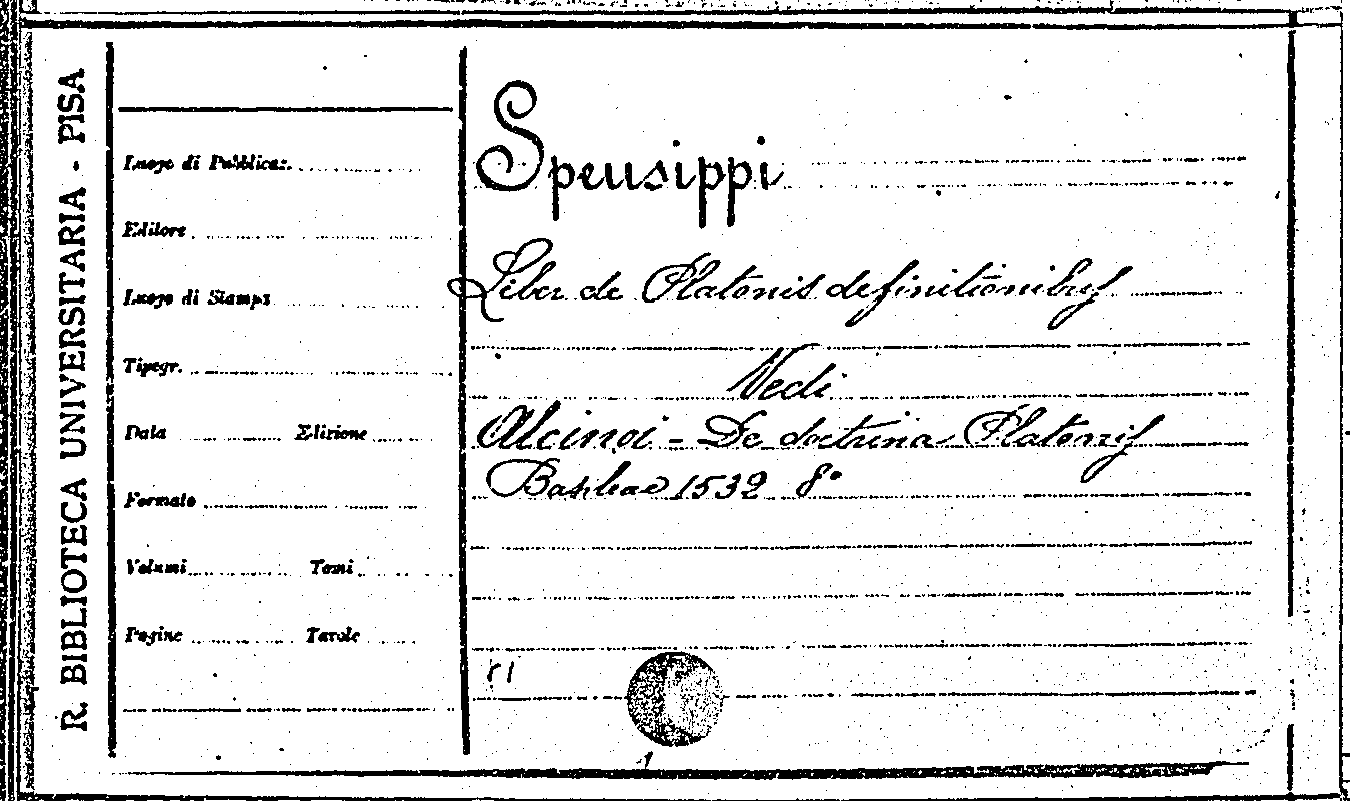 R. BIBLIOTECA UNIVERSITARIA - PISA
Luogo di Pubblicaz.
Editore
Luogo di Stampa
Tipogr.
Data Edizione
Formato
Volumi Tomi
Pagine Tavole
Speusippi
Liber de Platonis definitionibus
Vedi
Alcinoi - De doctrina Platonis
Basileae 1532 8°